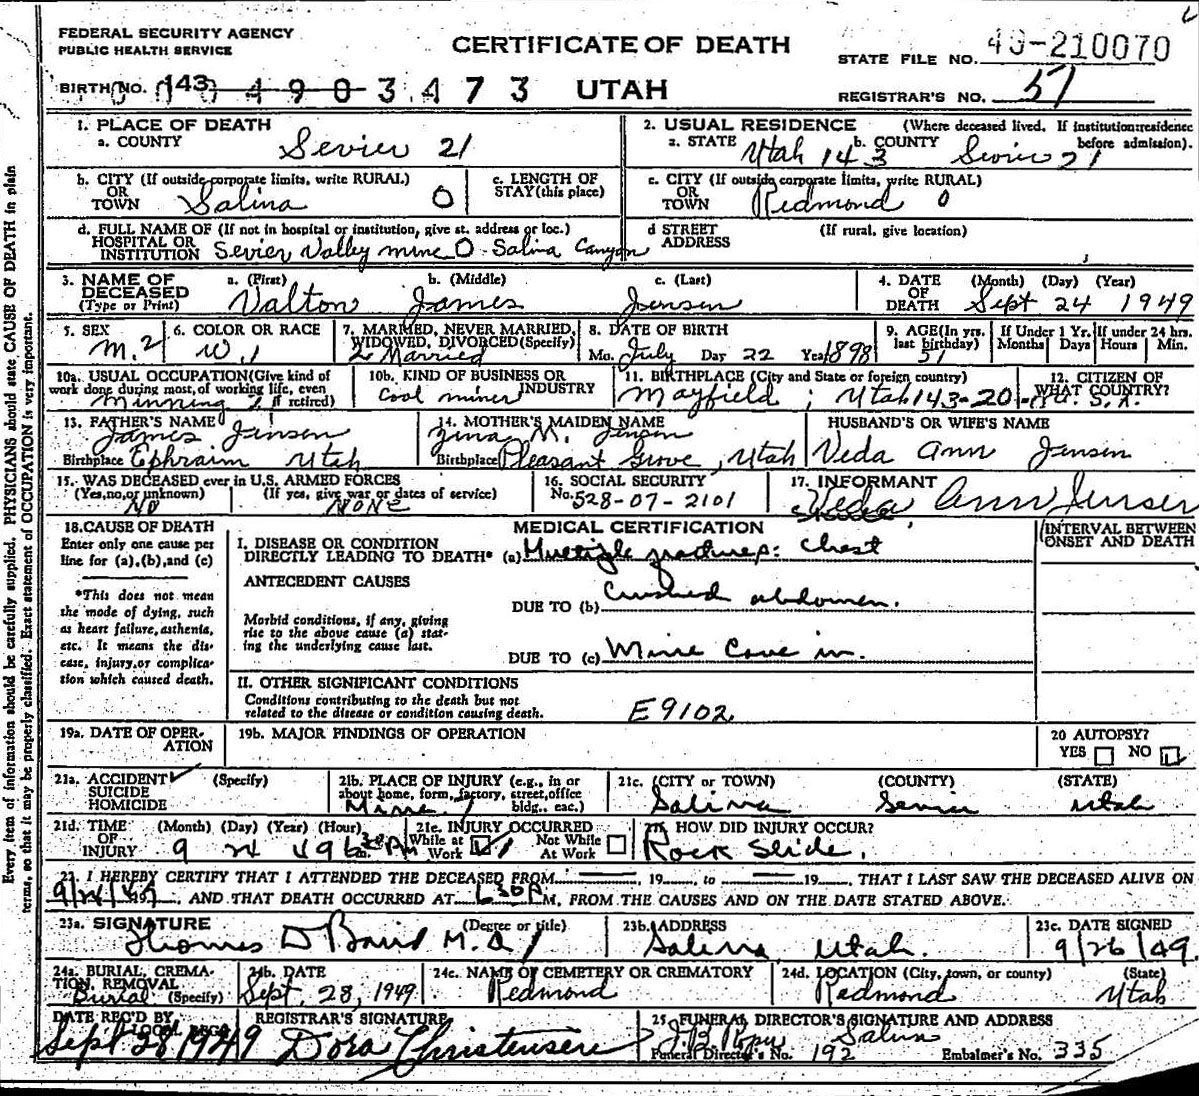 FEDERAL SECURITY AGENCY
PUBLIC HEALTH SERVICE
CERTIFICATE OF DEATH
UTAH
STATE FILE NO. 49-210070
BIRTH NO. 143 0 4 9 0 3 4 7 3
REGISTRAR'S NO. 57
1. PLACE OF DEATH
a. COUNTY Sevier 21
2. USUAL RESIDENCE (Where deceased lived. If institution: residence before admission).
a. STATE Utah 143 b. COUNTY Sevier 21
b. CITY (If outside corporate limits, write RURAL)
OR
TOWN Salina 0
c. LENGTH OF
STAY (this place)
c. CITY (If outside corporate limits, write RURAL)
OR
TOWN Redmond 0
d. FULL NAME OF (If not in hospital or institution, give st. address or loc.)
HOSPITAL OR
INSTITUTION Sevier Valley mine O Salina Canyon
d STREET (If rural, give location)
ADDRESS
3. NAME OF DECEASED (Type or Print)
a. (First) Valton b. (Middle) James c. (Last) Jensen
4. DATE OF DEATH (Month) (Day) (Year)
Sept 24 1949
5. SEX M. 2
6. COLOR OR RACE W. 1
7. MARRIED, NEVER MARRIED, WIDOWED, DIVORCED (Specify)
2 Married
8. DATE OF BIRTH
Mo. July Day 22 Year 1898
9. AGE (In yrs. last birthday) 51
If Under 1 Yr. Months Days
If under 24 hrs. Hours Min.
10a. USUAL OCCUPATION (Give kind of work done during most of working life, even if retired)
Minning
10b. KIND OF BUSINESS OR INDUSTRY
Coal miner
11. BIRTHPLACE (City and State or foreign country)
Mayfield, Utah 143-20
12. CITIZEN OF WHAT COUNTRY?
U. S. A.
13. FATHER'S NAME
James Jensen
Birthplace Ephraim Utah
14. MOTHER'S MAIDEN NAME
Zina M. Jensen
Birthplace Pleasant Grove, Utah
HUSBAND'S OR WIFE'S NAME
Veda Ann Jensen
15. WAS DECEASED ever in U.S. ARMED FORCES
(Yes, no, or unknown) (If yes, give war or dates of service)
No NONE
16. SOCIAL SECURITY
No. 528-07-2101
17. INFORMANT
Veda Ann Jensen
18. CAUSE OF DEATH
Enter only one cause per
line for (a), (b), and (c)
*This does not mean
the mode of dying, such
as heart failure, asthenia,
etc. It means the dis-
ease, injury, or complica-
tion which caused death.
MEDICAL CERTIFICATION
INTERVAL BETWEEN
ONSET AND DEATH
I. DISEASE OR CONDITION
DIRECTLY LEADING TO DEATH* (a) Multiple fractures: Chest
ANTECEDENT CAUSES
DUE TO (b) Crushed abdomen.
Morbid conditions, if any, giving
rise to the above cause (a) stat-
ing the underlying cause last.
DUE TO (c) Mine Cave in.
II. OTHER SIGNIFICANT CONDITIONS
Conditions contributing to the death but not
related to the disease or condition causing death.
E9102
19a. DATE OF OPER-
ATION
19b. MAJOR FINDINGS OF OPERATION
20 AUTOPSY?
YES NO
21a. ACCIDENT ✓ (Specify)
SUICIDE
HOMICIDE
21b. PLACE OF INJURY (e.g., in or about home, form, factory, street, office bldg., eac.)
Mine 1
21c. (CITY or TOWN) (COUNTY) (STATE)
Salina Sevier Utah
21d. TIME OF INJURY (Month) (Day) (Year) (Hour)
9 24 49 6 30 PM
21e. INJURY OCCURRED
While at Work Not While At Work
HOW DID INJURY OCCUR?
Rock Slide.
22. I HEREBY CERTIFY THAT I ATTENDED THE DECEASED FROM 19 , to 19 , THAT I LAST SAW THE DECEASED ALIVE ON
9/24/49, AND THAT DEATH OCCURRED AT 6 30 P M, FROM THE CAUSES AND ON THE DATE STATED ABOVE.
23a. SIGNATURE (Degree or title)
Thomas D Baird M.D. 1
23b. ADDRESS
Salina, Utah.
23c. DATE SIGNED
9/26/49.
24a. BURIAL, CREMA-
TION, REMOVAL
Burial (Specify)
24b. DATE
Sept. 28, 1949
24c. NAME OF CEMETERY OR CREMATORY
Redmond
24d. LOCATION (City, town, or county) (State)
Redmond Utah
DATE REC'D BY LOCAL REG.
Sept 28 1949
REGISTRAR'S SIGNATURE
Dora Christensen
25. FUNERAL DIRECTOR'S SIGNATURE AND ADDRESS
Salina
Funeral Director's No. 192 Embalmer's No. 335
Every item of information should be carefully supplied. PHYSICIANS should state CAUSE OF DEATH in plain
terms, so that it may be properly classified. Exact statement of OCCUPATION is very important.